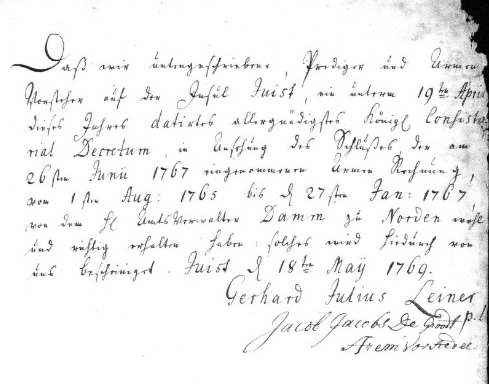 Daß wir untengeschriebene, Prediger und Armen
Vorsteher auf der Insul Juist, ein unterm 19ten April
dieses Jahres datirtes allergnädigstes Königl. Consisto
rial Decretum, in Ansehung des Schlußes der am
26sten Junii 1767 eingenommenen Armen Rechnung,
vom 1sten Aug: 1765 bis d 27sten Jan: 1767
von dem H. Amts Verwalter Damm zu Norden wohl
und richtig erhalten haben: solches wird hiedurch von
uns bescheiniget. Juist d 18ten May 1769.
Gerhard Julius Leiner
Jacob Jacobs De Groot
Arem Vorsteher